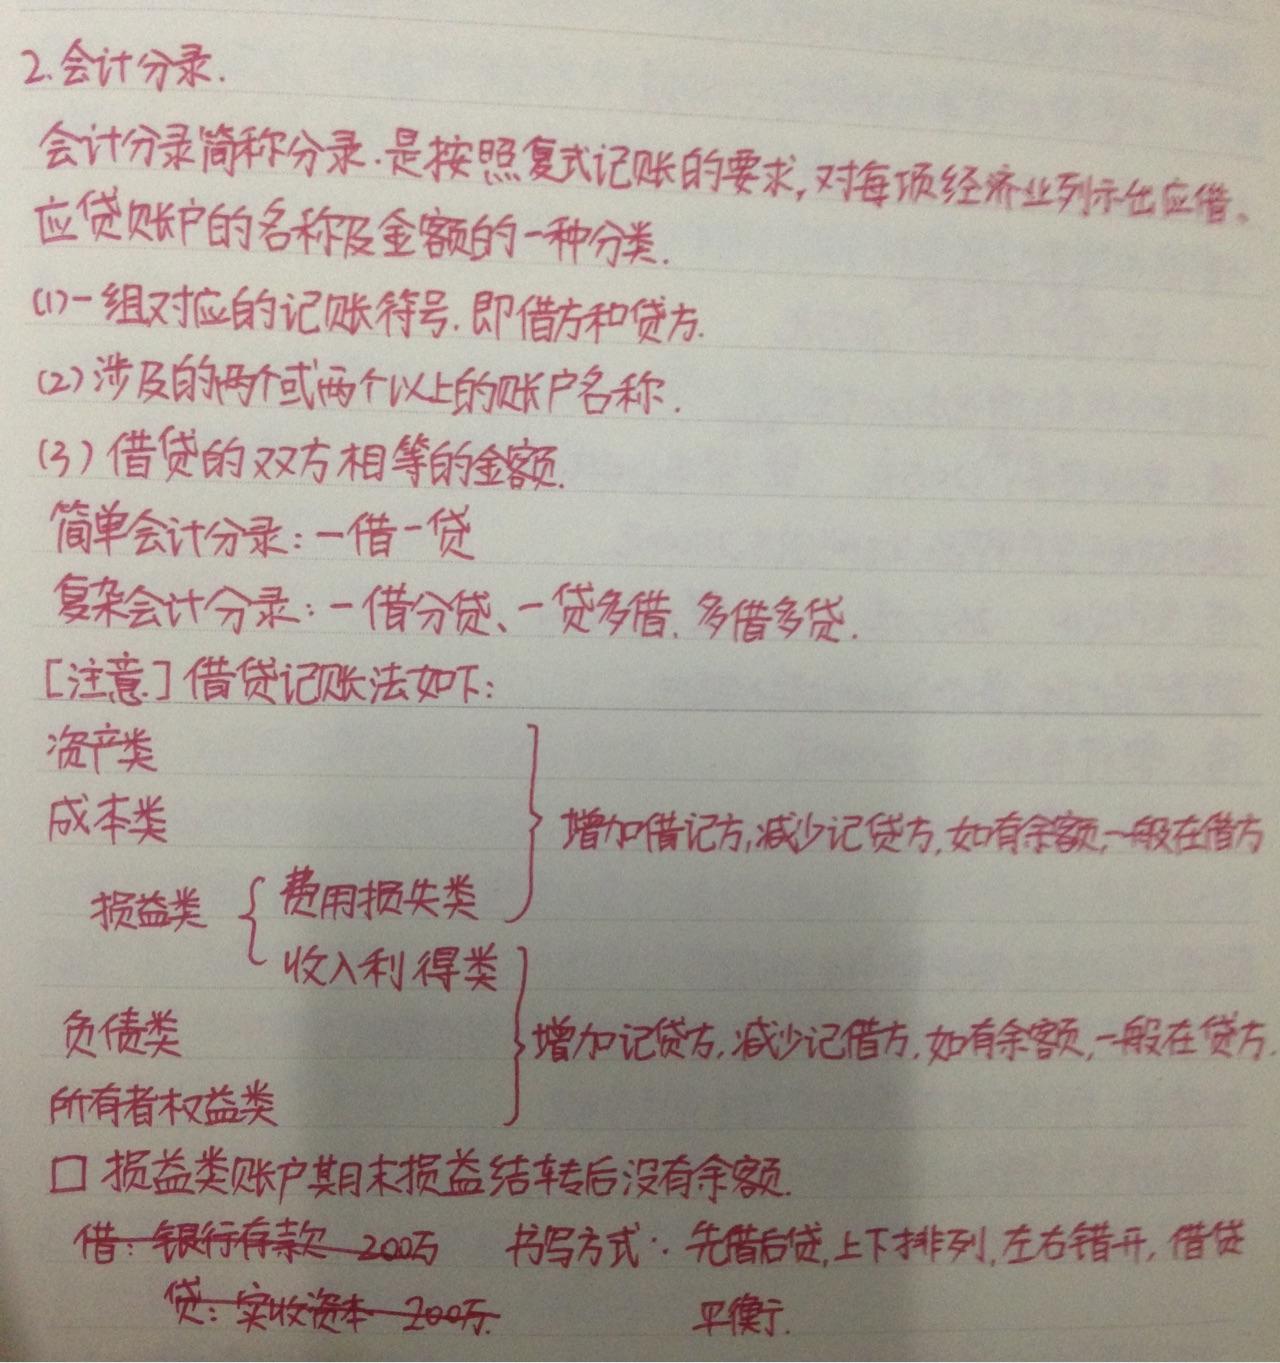 2.会计分录.
会计分录简称分录.是按照复式记账的要求,对每项经济业列示出应借、
应贷账户的名称及金额的一种分类.
(1)一组对应的记账符号.即借方和贷方.
(2)涉及的两个或两个以上的账户名称.
(3)借贷的双方相等的金额.
简单会计分录:一借一贷
复杂会计分录:一借分贷、一贷多借、多借多贷.
[注意]借贷记账法如下:
资产类
成本类
增加借记方,减少记贷方,如有余额,一般在借方
损益类 { 费用损失类
收入利得类
负债类
增加记贷方,减少记借方,如有余额,一般在贷方.
所有者权益类
□ 损益类账户期末损益结转后没有余额.
借:银行存款 200万 书写方式:先借后贷,上下排列,左右错开,借贷
贷:实收资本 200万. 平衡.